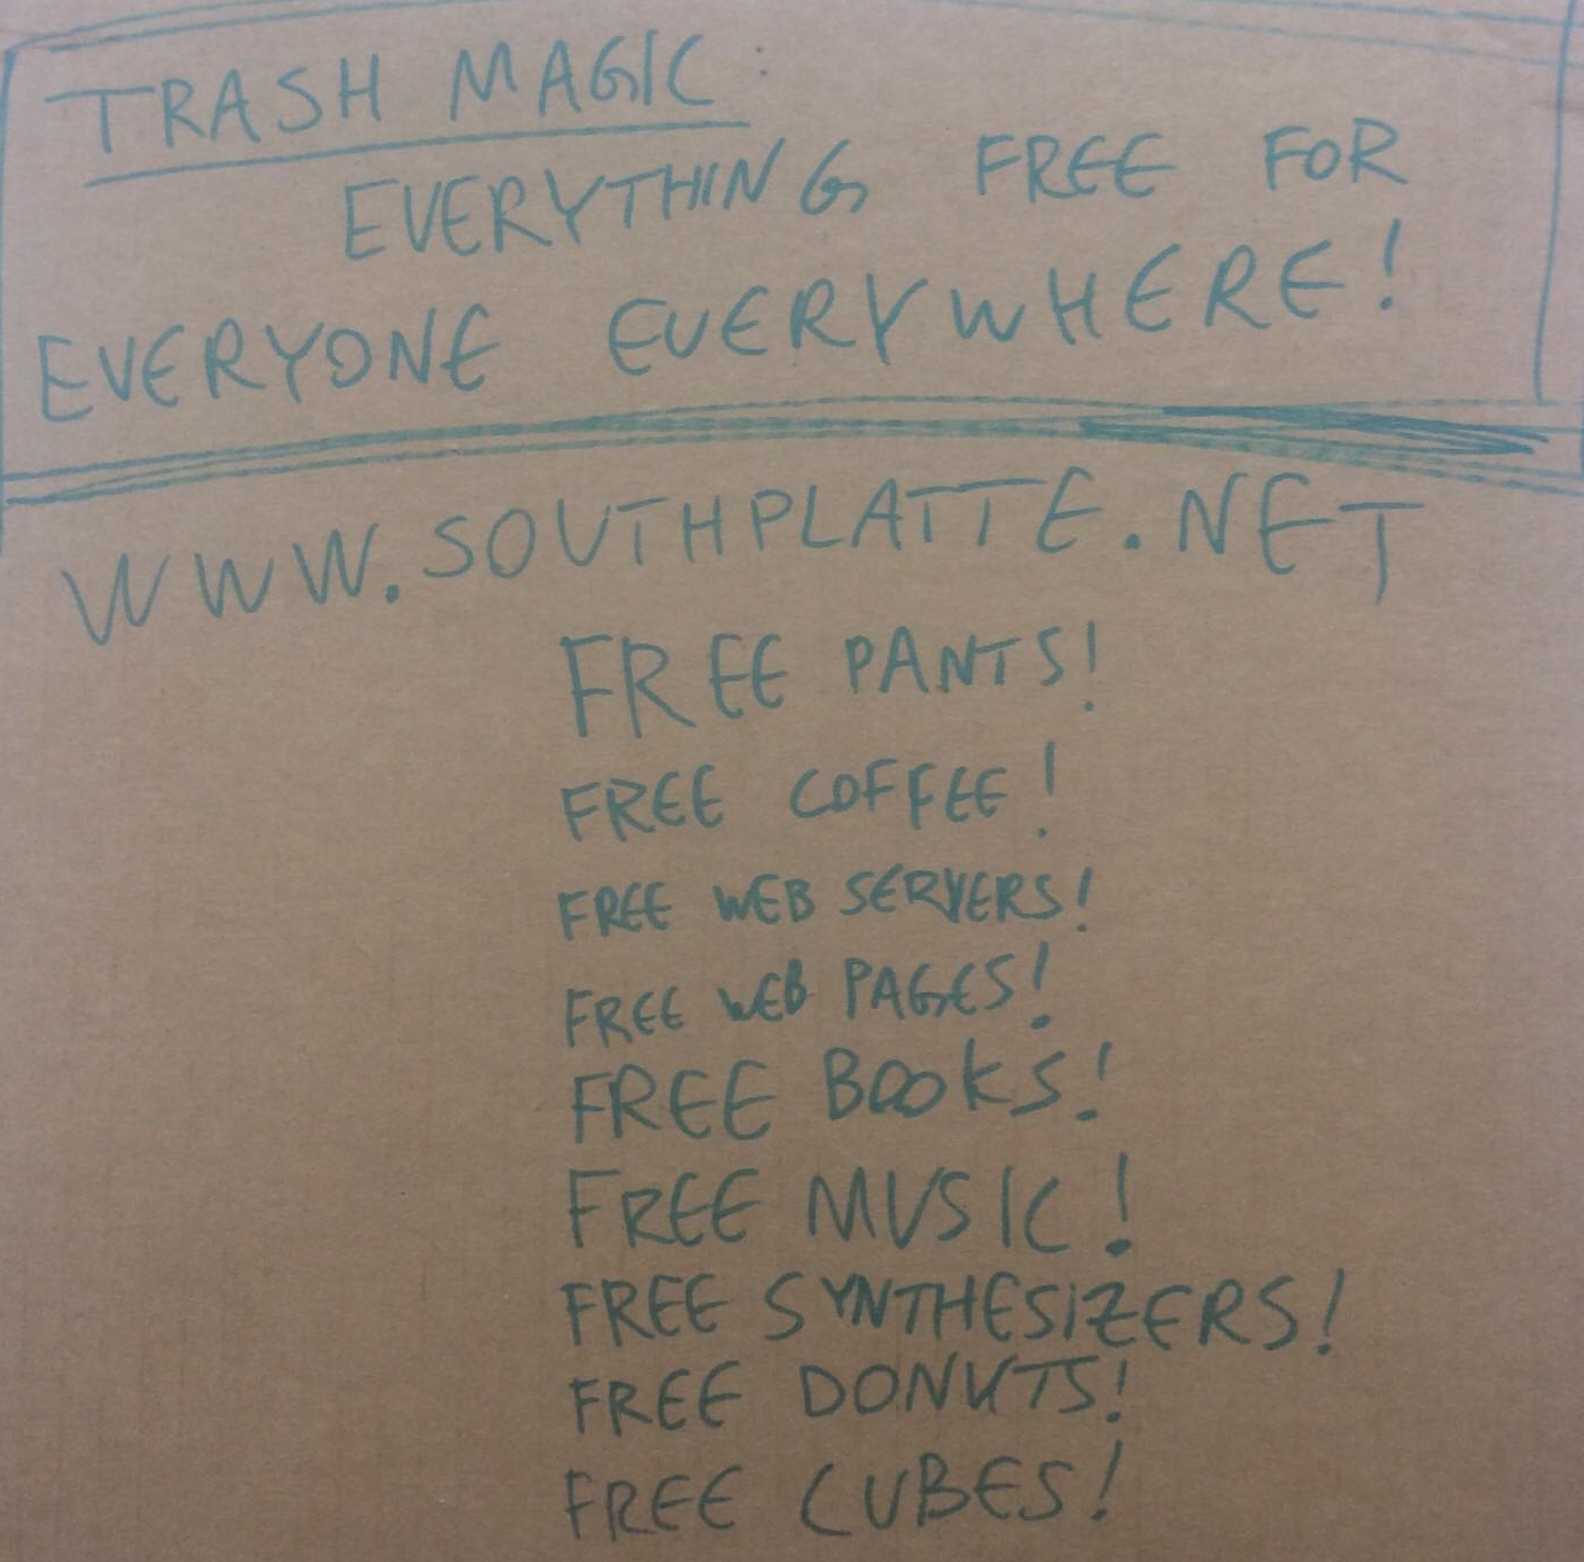 TRASH MAGIC:
EVERYTHING FREE FOR
EVERYONE EVERYWHERE!
WWW.SOUTHPLATTE.NET
FREE PANTS!
FREE COFFEE!
FREE WEB SERVERS!
FREE WEB PAGES!
FREE BOOKS!
FREE MUSIC!
FREE SYNTHESIZERS!
FREE DONUTS!
FREE CUBES!